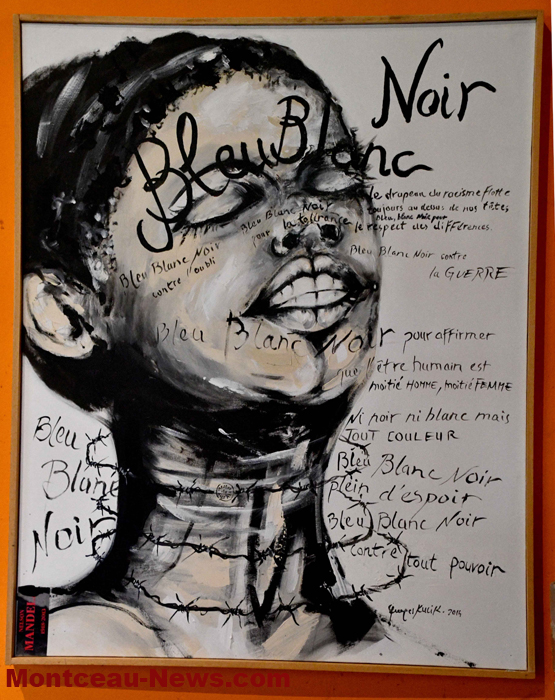 Noir
Bleu Blanc
le drapeau du racisme flotte
toujours au dessus de nos têtes
Bleu, blanc Noir pour
le respect des différences.
Bleu Blanc Noir
pour la tolérance
Bleu Blanc Noir
contre l'oubli
Bleu Blanc Noir contre
la GUERRE
Bleu Blanc Noir pour affirmer
que l'être humain est
moitié HOMME, moitié FEMME
Ni noir ni blanc mais
TOUT COULEUR
Bleu Blanc Noir
Plein d'espoir
Bleu Blanc Noir
contre tout pouvoir
Bleu
Blanc
Noir
2014
NELSON
MANDELA
Montceau-News.com